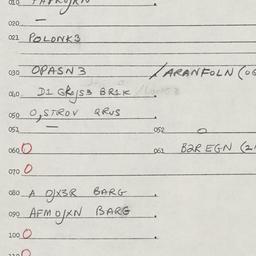 010
020 —
021 POLONK3
030 OPASN3 / ARANFOLN (06
040 D1 GRO/S3 BR1K
050 O,STROV QRUS
051 — 052 O
060 O 061 B2R EGN (2
070 O
080 A O/X3R BARG
090 AFM O/XN BARG
100 O
110 O